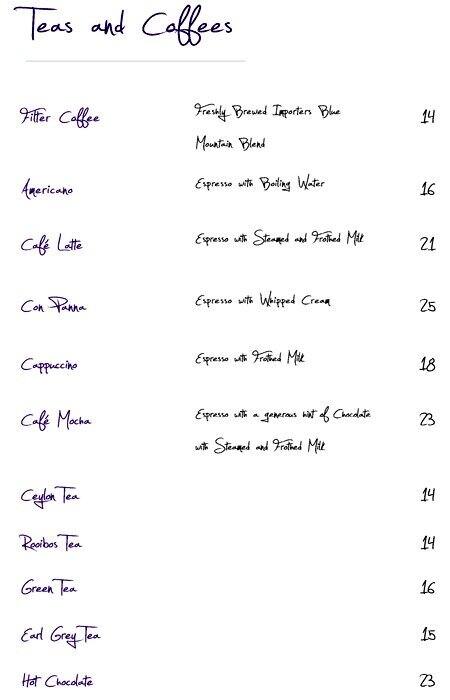 Teas and Coffees
Filter Coffee Freshly Brewed Importers Blue 14
Mountain Blend
Americano Espresso with Boiling Water 16
Café Latte Espresso with Steamed and Frothed Milk 21
Con Panna Espresso with Whipped Cream 25
Cappuccino Espresso with Frothed Milk 18
Café Mocha Espresso with a generous hint of Chocolate 23
with Steamed and Frothed Milk
Ceylon Tea 14
Rooibos Tea 14
Green Tea 16
Earl Grey Tea 15
Hot Chocolate 23